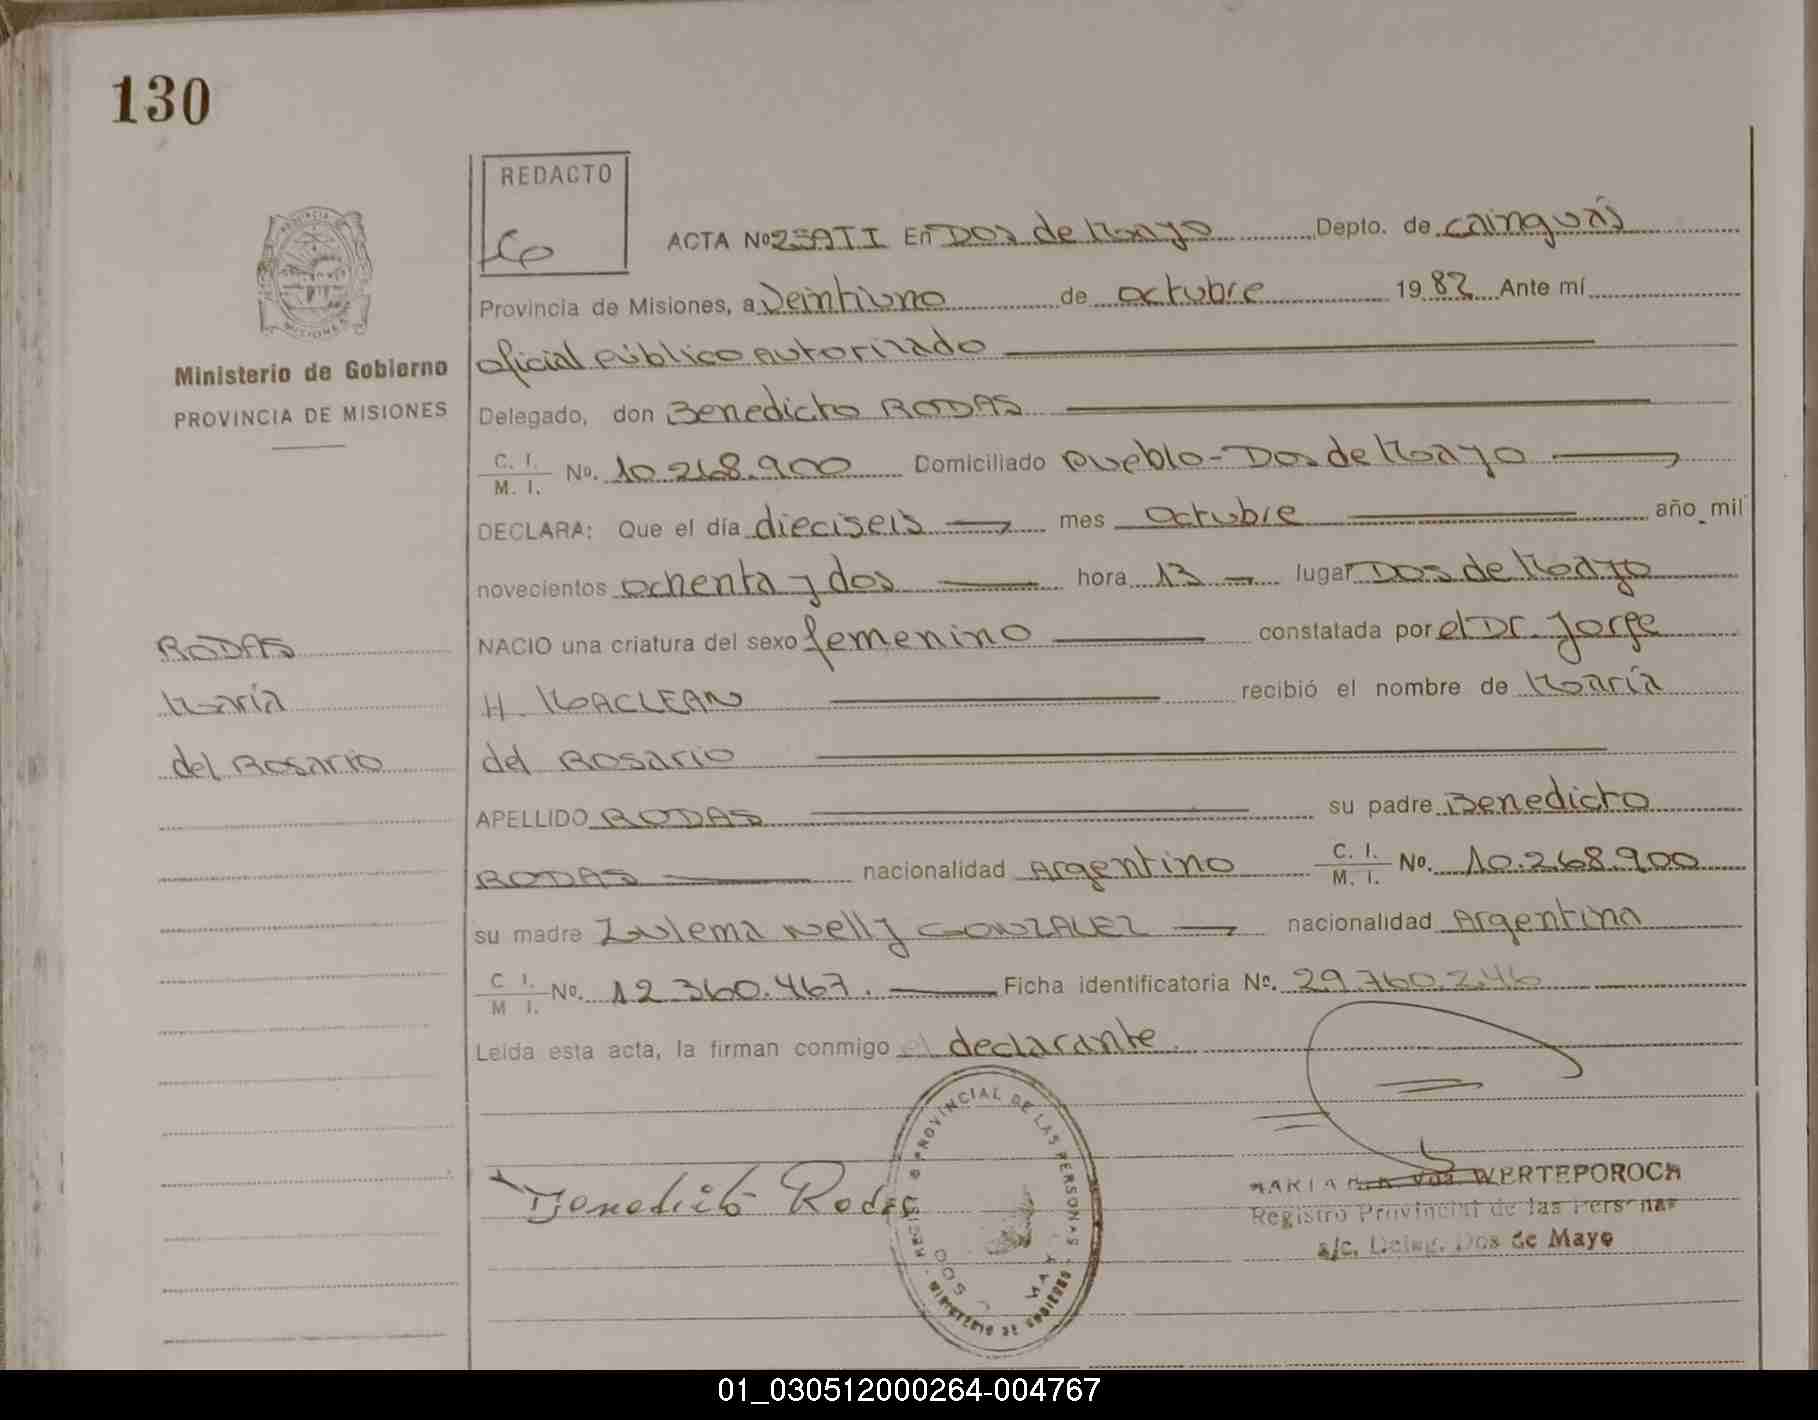 130
REDACTO
ACTA Nº 259TI En Dos de Mayo Depto. de Cainguás
Provincia de Misiones, a Veintiuno de octubre 1982 Ante mí
oficial público autorizado
Delegado, don Benedicto RODAS
C. I. / M. I. Nº. 10.268.900 Domiciliado Pueblo - Dos de Mayo
DECLARA: Que el día dieciseis mes octubre año mil
novecientos ochenta y dos hora 13 lugar Dos de Mayo
NACIO una criatura del sexo femenino constatada por el Dr. Jorge
H. MACLEAN recibió el nombre de María
del Rosario
APELLIDO RODAS su padre Benedicto
RODAS nacionalidad Argentino C. I. / M. I. Nº. 10.268.900
su madre Zulema Nelly GONZALEZ nacionalidad Argentina
C I. / M I. Nº. 12.360.467. Ficha identificatoria Nº. 29.760.246
Leída esta acta, la firman conmigo el declarante.
PROVINCIA
MISIONES
Ministerio de Gobierno
PROVINCIA DE MISIONES
RODAS
María
del Rosario
Benedicto Rodas
PROVINCIAL DE LAS PERSONAS
MINISTERIO DE GOBIERNO
WERTEPOROCH
Registro Provincial de las Personas
a/c. Deleg. Dos de Mayo
01_030512000264-004767